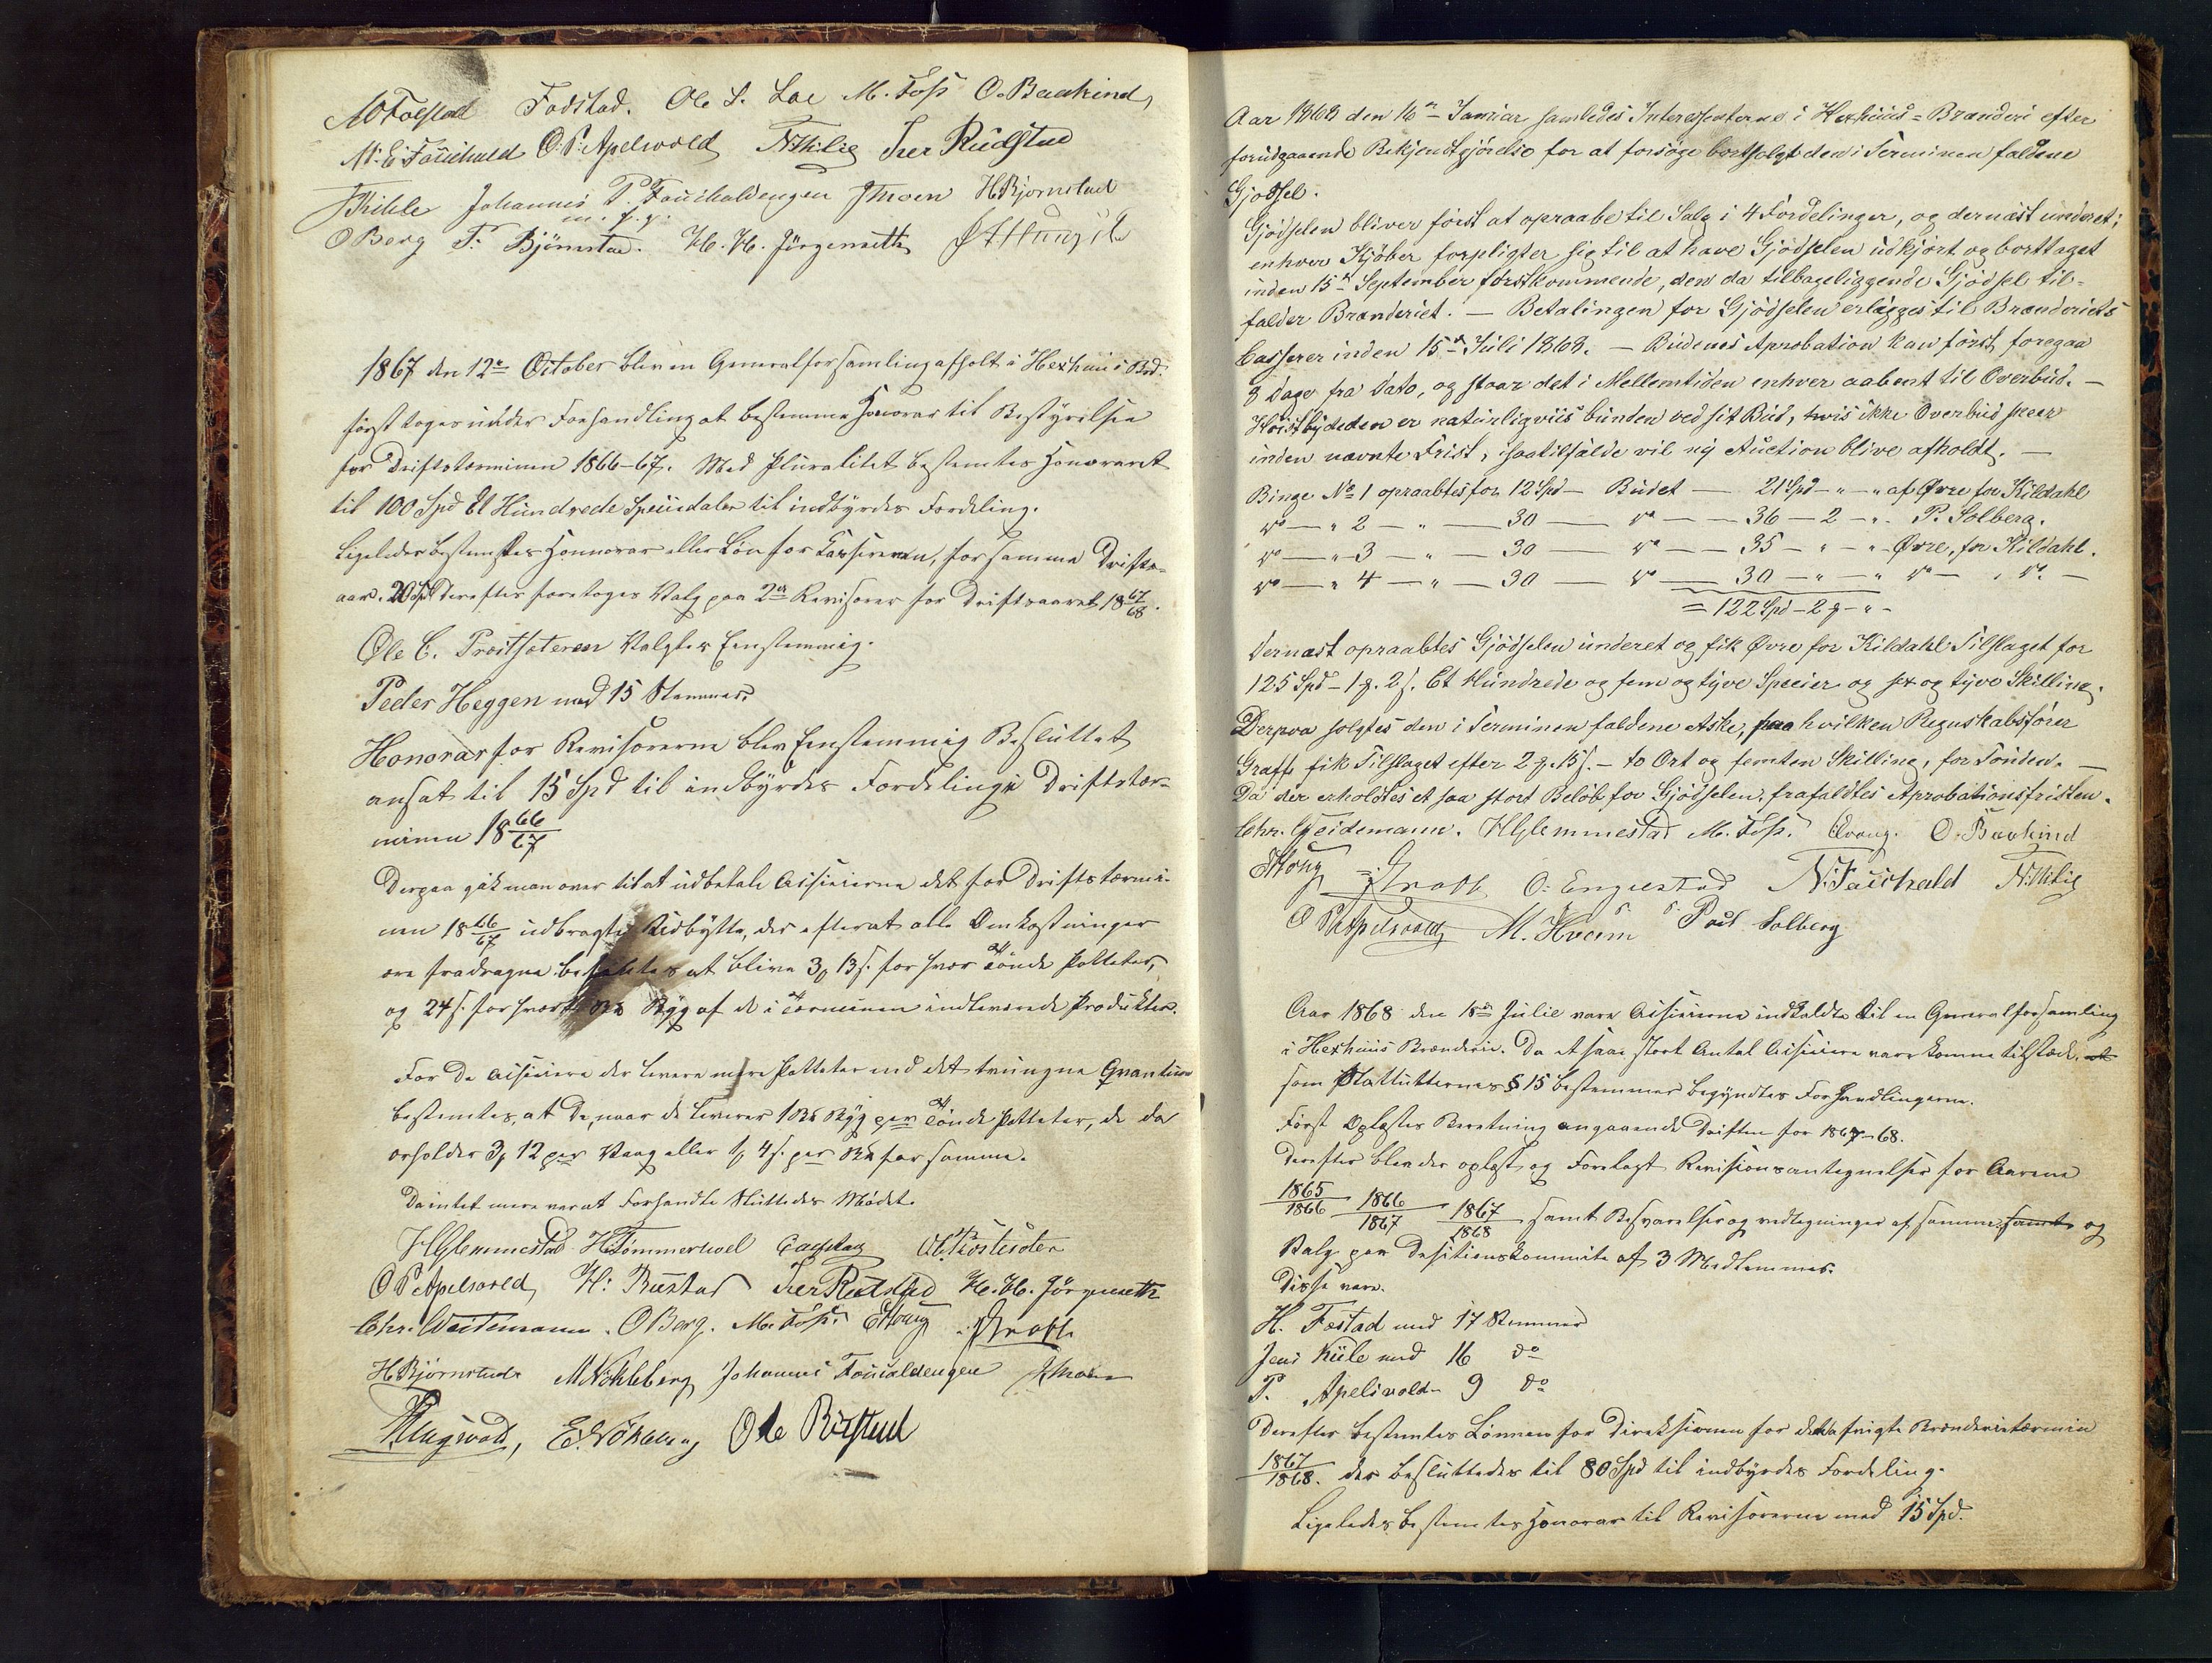 Fodstad. Ole L. Loe M. Foss O. Baakind
M. E. Fauchald O. P. Apelsvold N Hilie Iver Rudstad
J Kihle Johannes P. Fauchaldengen J Moen H Bjørnstad
m. f. p.
O Berg F. Bjørnstad. H. H. Jørgenseth
1867 den 12te October blev en Generalforsamling afholt i Hexhuus Brd.
først toges under Forhandling at bestemme Honorar til Bestyrelsen
for Driftsterminen 1866-67. Med Pluralitet bestemtes Honoraret
til 100 Spd Et Hundrede Speciedaler til indbyrdes Fordeling.
Ligeledes bestemtes Honnorar eller Løn for Kassereren, for samme Drifts-
aar. 20 Spd Derefter foretoges Valg paa 2de Revisorer for Driftsaaret 18 67/68.
Ole C. Prostsæteren Valgtes Eenstemmig.
Peder Heggen med 15 Stemmer.
Honorar for Revisorerne blev Eenstemmig Besluttet
ansat til 15 Spd til indbyrdes Fordeling i Driftster-
minen 18 66/67
Derpaa gik man over til at udbetale Actieierne det for Driftstermi-
nen 18 66/67 udbragte Udbytte, der efterat alle Omkostninger
ere fradragne at blive 3 13 s. for hver Tønde Potteter,
og 24 s. for hvert Byg af de i Terminen indleverede Produkter.
For de Actieiere der levere mere Potteter end det tvungne Qvantum
bestemtes, at de, naar de leverer 1 Byg per Tønde Potteter, de da
erholder 3 12 per Vaag eller 4 s. per for samme.
Da intet mere var at Forhandle Sluttedes Mødet.
H Glemmestad H Tømmerhoel O C Prostsæter
O P Apelsvold, H: Rustad Iver Rudstad H. H. Jørgenseth
Chr. Weidemann. O Berg. M. Foss. E Haug J Graff
H Bjørnstad M Nøkleberg Johannes Fouchaldengen J Moen
E. Nøkleberg Ole Rogstad
Aar 1868 den 16de Januar samledes Interessenterne i Hexhuus-Brænderi efter
forudgaaende Bekjendtgjørelse for at forsøge bortsolgt den i Terminen faldene
Gjødsel.
Gjødselen bliver først at opraabe til Salg i 4 Fordelinger, og dernæst underet;
enhver Kjøber forpligter sig til at have Gjødselen udkjørt og borttaget
inden 15de September førstkommende, den da tilbageliggende Gjødsel til-
falder Brænderiet. — Betalingen for Gjødselen erlægges til Brænderiets
Casserer inden 15de Juli 1868. — Budenes Aprobation kan først foregaa
8 Dage fra Dato, og staar det i Mellemtiden enhver aabent til Overbud. —
Høistbydeden er naturligviis bunden ved sit Bud, hvis ikke Overbud skeer
inden nævnte Frist, isaatilfælde vil ny Auction blive afholdt. —
Binge No 1 opraabtes for 12 Spd — Budet — 21 Spd - " - " af Øvre for Kildahl
do — " 2 — " — 30 — do — 36 — 2 - ". P. Solberg.
do — " 3 — " — 30 do — 35 - " - " - Øvre, for Kildahl.
do — " 4 — " — 30 — do — 30 - " - " do — " do. —
= 122 Spd - 2 - " -
Dernæst opraabtes Gjødselen underet og fik Øvre for Kildahl Tilslaget for
125 Spd - 1 . 2 s. Et Hundrede og fem og tyve Specier og sex og tyve Skilling.
Derpaa solgtes den i Terminen faldene Aske, paa hvilken Regnskabsfører
Graff fik Tilslaget efter 2 . 15 s. — to Ort og femten Skilling, for Tønden. —
Da der erholdtes et saa stort Beløb for Gjødselen, frafaldtes Aprobationsfristen.
Chr. Weidemann. H Glemmestad M. Foss. O. Baakind
E Haug J Graff O: Engelstad N. Fauchald N. Hilie
O P Apelsvold M. Hveem Poul Solberg
Aar 1868 den 18de Julie vare Actieierne indkaldte til en Generalforsamling
i Hexhuus Brænderie. Da et saa stort Antal Actieiere vare komne tilstede,
som Statutternes § 15 bestemmer begyndtes Forhandlingerne.
Først Oplæstes Beretning angaaende Driften for 1867-68.
Derefter blev der oplæst og Forelagt Revisionsantegnelser for Aarene
1865/1866 1866/1867 1867/1868 samt Besvarelser og vedtegninger af samme, samt og
Valg paa Desitionskommite af 3 Medlemmer.
Disse vare.
H. Festad med 17 Stemmer
Jens Kiile med 16 do
P. Apelsvold - 9 do
Derefter bestemtes Lønnen for Direktionen for dette frigte Brænderitermin
1867/1868. der besluttedes til 80 Spd til indbyrdes Fordeling.
Ligeledes bestemtes Honorar til Revisorerne med 15 Spd.